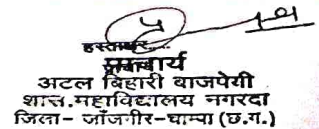 हस्ताक्षर....
प्राचार्य
अटल बिहारी बाजपेयी
शास.महाविद्यालय नगरदा
जिला- जाँजगीर-चाम्पा (छ.ग.)